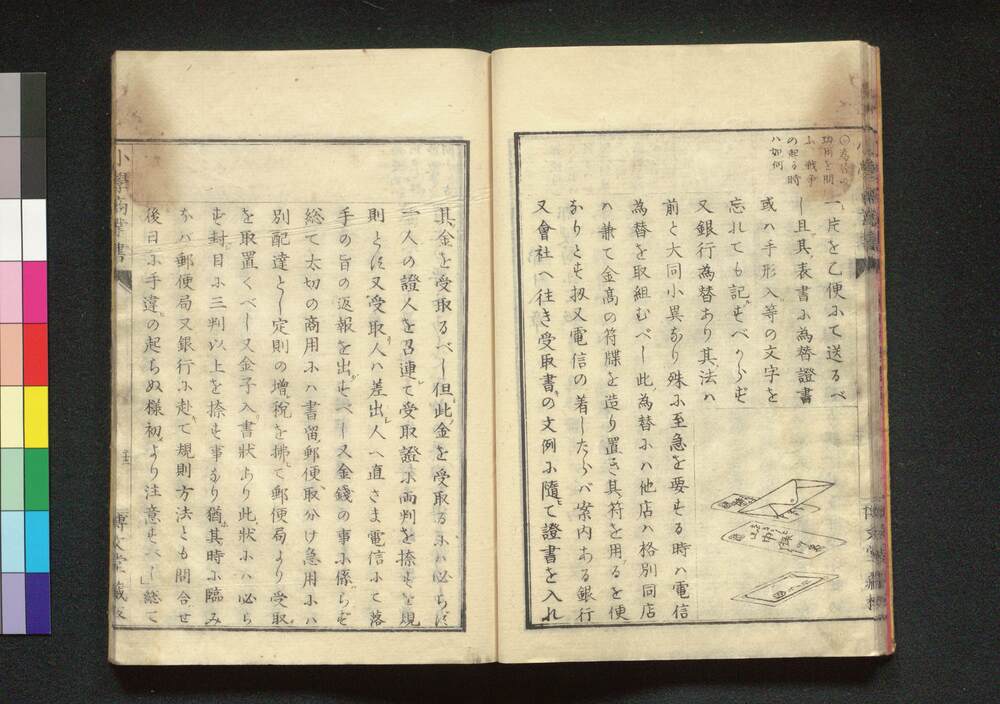 功用を問
ふ戦争
の起る時
ハ如何
一片を乙便ふて送るべ
し且其表書ふ為替證書
或ハ手形入等の文字を
忘れても記すべからず
又銀行為替あり其法ハ
前と大同小異なり殊ふ至急を要する時ハ電信
為替を取組むべし此為替ふハ他店ハ格別同店
ハ兼て金高の符牒を造り置き其符を用るを便
なりとす扨又電信の着したらバ案内ある銀行
又會社へ往き受取書の文例ふ隨て證書を入れ
其金を受取るべし但此金を受取るふハ必ちず
一人の證人を召連て受取證ふ両判を捺すを規
則とす又受取人ハ差出人へ直さま電信ふて落
手の旨の返報を出すべし又金錢の事ふ係らず
総て太切の商用ふハ書留郵便取分け急用ふハ
別配達とし定則の増税を拂て郵便局より受取
を取置くべし又金子入書狀あり此狀ふハ必ら
ず封目ふ三判以上を捺す事なり猶其時ふ臨み
なバ郵便局又銀行ふ赴て規則方法とも問合せ
後日ふ手違の起らぬ様初より注意すべし」総て
小學商業書
博文堂藏版